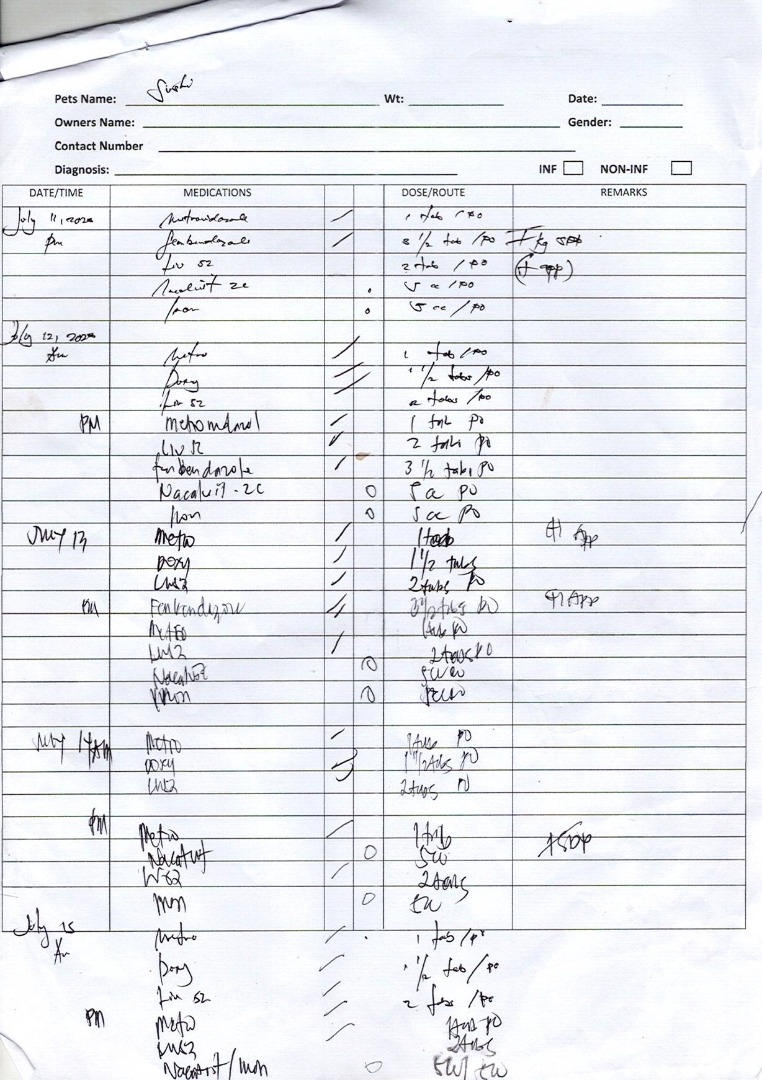 Pets Name: Sushi Wt: Date:
Owners Name: Gender:
Contact Number
Diagnosis: INF NON-INF
DATE/TIME MEDICATIONS DOSE/ROUTE REMARKS
July 11, 2020 Metronidazole 1 tab / PO
pm fenbendazole 3 1/2 tab / PO
Liv 52 2 tab / PO (+ app)
Nacalvit 2c 5 cc / PO
Iron 5 cc / PO
July 12, 2020
Am Metro 1 tab / PO
Doxy 1 1/2 tabs / PO
Liv 52 2 tabs / PO
PM Metronidazol 1 tab PO
Liv 52 2 tabs PO
fenbendazole 3 1/2 tabs PO
Nacalvit-2C 5 cc PO
Iron 5 cc PO
July 13 Metro 1 tab (+) App
DOXY 1 1/2 tabs
Liv52 2 tabs PO
PM Fenbendazole 3 1/2 tabs PO (+) App
Metro 1 tab PO
Liv52 2 tabs PO
Nacalvit
Iron
July 14 AM Metro 1 tab PO
DOXY 1 1/2 tabs PO
Liv52 2 tabs PO
PM Metro 1 tab
Nacalvit 5cc
Liv52 2 tabs
Iron 5cc
July 15 Metro 1 tab / PO
Am Doxy 1 1/2 tab / PO
Liv 52 2 tabs / PO
PM Metro 1 tab PO
Liv52 2 tabs
Nacalvit / Iron 5cc / 5cc